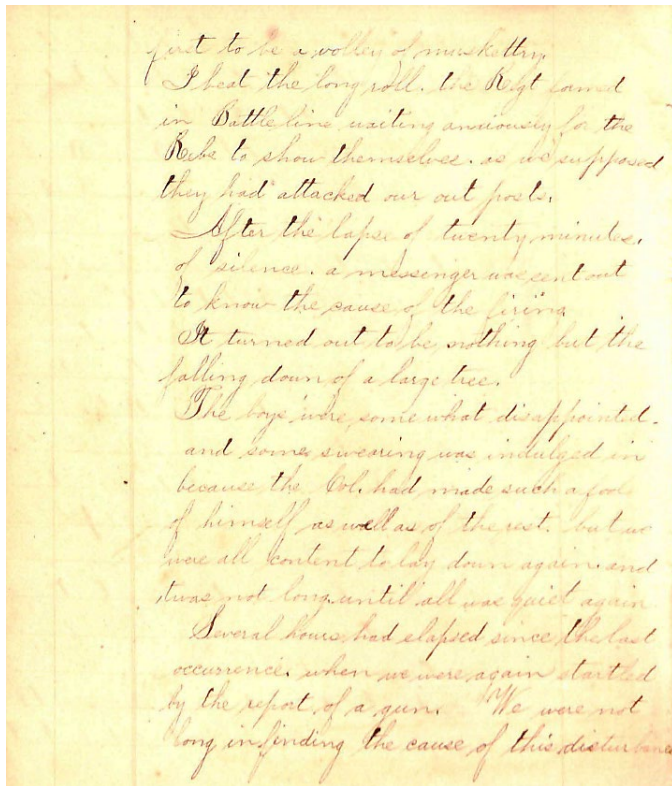 first to be a volley of muskettry.
I beat the long roll. the Regt formed
in Battle line waiting anxiously for the
Rebs to show themselves. as we supposed
they had attacked our out posts.
After the lapse of twenty minutes.
of silence. a messenger was sent out
to know the cause of the firing
It turned out to be nothing but the
falling down of a large tree.
The boys were some what disappointed.
and some swearing was indulged in
because the Col. had made such a fool
of himself as well as of the rest. but we
were all content to lay down again. and
twas not long until all was quiet again
Several hours had elapsed since the last
occurrence. when we were again startled
by the report of a gun. We were not
long in finding the cause of this disturbance